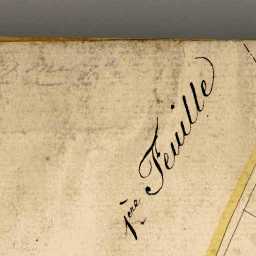 1ère Feuille